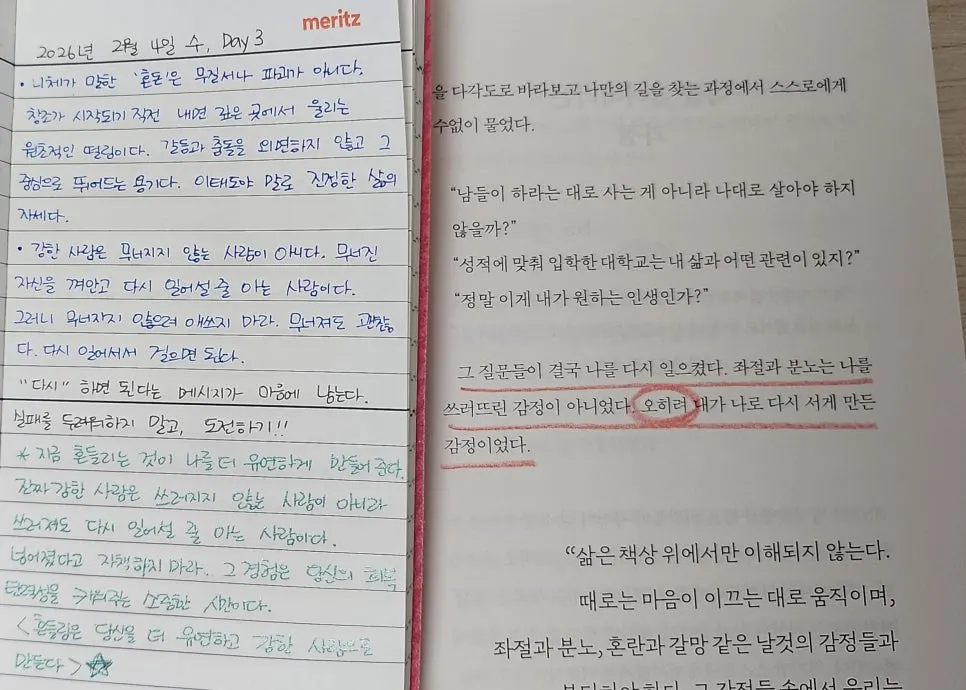 meritz
2026년 2월 4일 수, Day 3
• 니체가 말한 '혼돈'은 무질서나 파괴가 아니다.
창조가 시작되기 직전 내면 깊은 곳에서 울리는
원초적인 떨림이다. 갈등과 충돌을 외면하지 않고 그
중심으로 뛰어드는 용기다. 이태도야 말로 진정한 삶의
자세다.
• 강한 사람은 무너지지 않는 사람이 아니다. 무너진
자신을 껴안고 다시 일어설 줄 아는 사람이다.
그러니 무너지지 않으려 애쓰지 마라. 무너져도 괜찮
다. 다시 일어서서 걸으면 된다.
"다시" 하면 된다는 메시지가 마음에 남는다.
실패를 두려워하지 말고, 도전하기!!
* 지금 흔들리는 것이 나를 더 유연하게 만들어 준다.
진짜 강한 사람은 쓰러지지 않는 사람이 아니라
쓰러져도 다시 일어설 줄 아는 사람이다.
넘어졌다고 자책하지 마라.. 그 경험은 당신의 회복
탄력성을 키워주는 소중한 시간이다.
<흔들림은 당신을 더 유연하고 강한 사람으로
만든다>☆
을 다각도로 바라보고 나만의 길을 찾는 과정에서 스스로에게
수없이 물었다.
“남들이 하라는 대로 사는 게 아니라 나대로 살아야 하지
않을까?”
“성적에 맞춰 입학한 대학교는 내 삶과 어떤 관련이 있지?”
“정말 이게 내가 원하는 인생인가?”
그 질문들이 결국 나를 다시 일으켰다. 좌절과 분노는 나를
쓰러뜨린 감정이 아니었다. 오히려 내가 나로 다시 서게 만든
감정이었다.
“삶은 책상 위에서만 이해되지 않는다.
때로는 마음이 이끄는 대로 움직이며,
좌절과 분노, 혼란과 갈망 같은 날것의 감정들과
부딪혀야 한다. 그 감정들 속에서 우리는